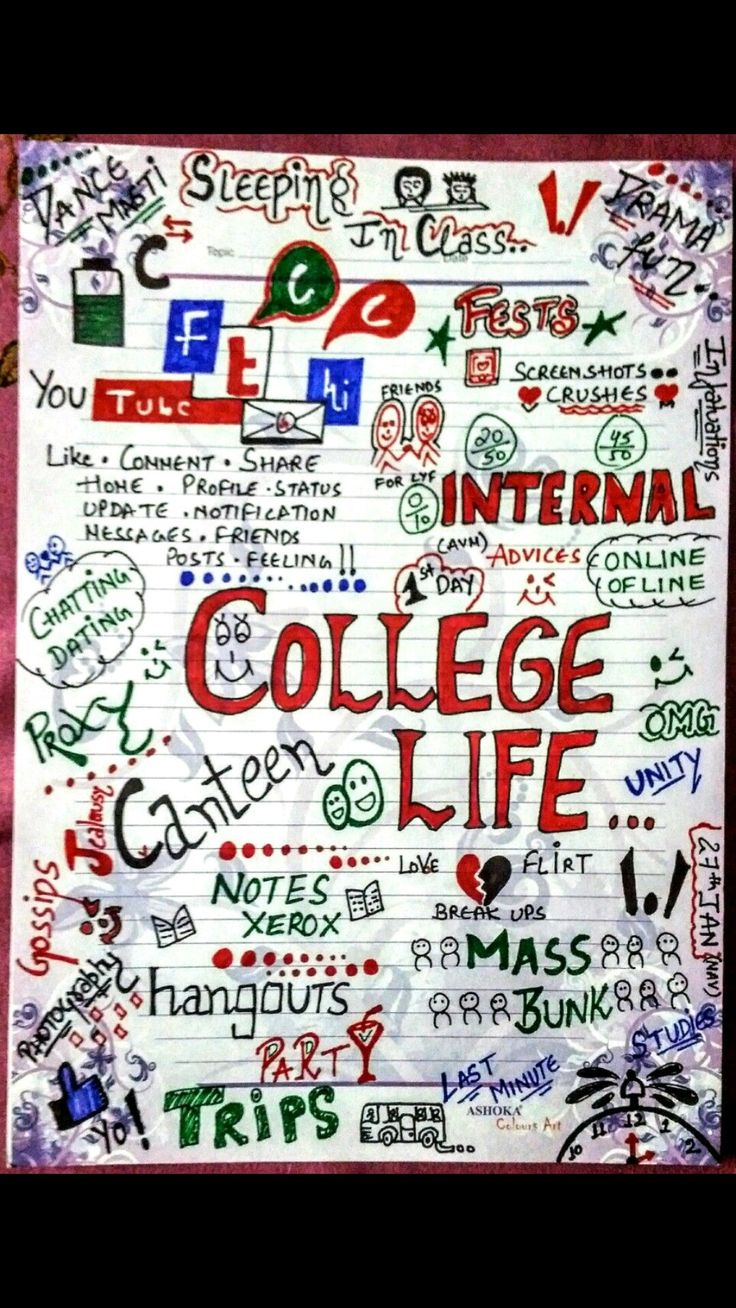 DANCE
MASTI
SLEEPING
In Class..
DRAMA
fun
Topic
Date
C
C
C
f
t
hi
You Tube
FESTS
SCREENSHOTS
CRUSHES
Infatuations
FRIENDS
FOR LYF
20/50
45/50
0/10
INTERNAL
(AVM)
Like . COMMENT . SHARE
HOME . PROFILE . STATUS
UPDATE . NOTIFICATION
MESSAGES . FRIENDS
POSTS . FEELING !!
1st DAY
ADVICES
ONLINE
OFLINE
CHATTING
DATING
COLLEGE
LIFE...
PROXY
OMG
UNITY
Canteen
Jealousy
Gossips
NOTES
XEROX
LOVE
FLIRT
BREAK UPS
27th JAN (NAV)
MASS
BUNK
PHOTOGRAPHY
hangouts
PARTY
STUDIES
LAST
MINUTE
Yo!
TRIPS
ASHOKA
Colours Art
10 11 12 1 2